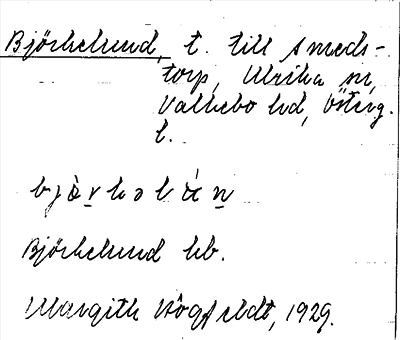 Björkelund, t. till Smeds-
torp, Ulrika sn,
Valkebo hd, Österg.
l.
bjö̀rkəlún
Björkelund hb.
Margith Högfeldt, 1929.